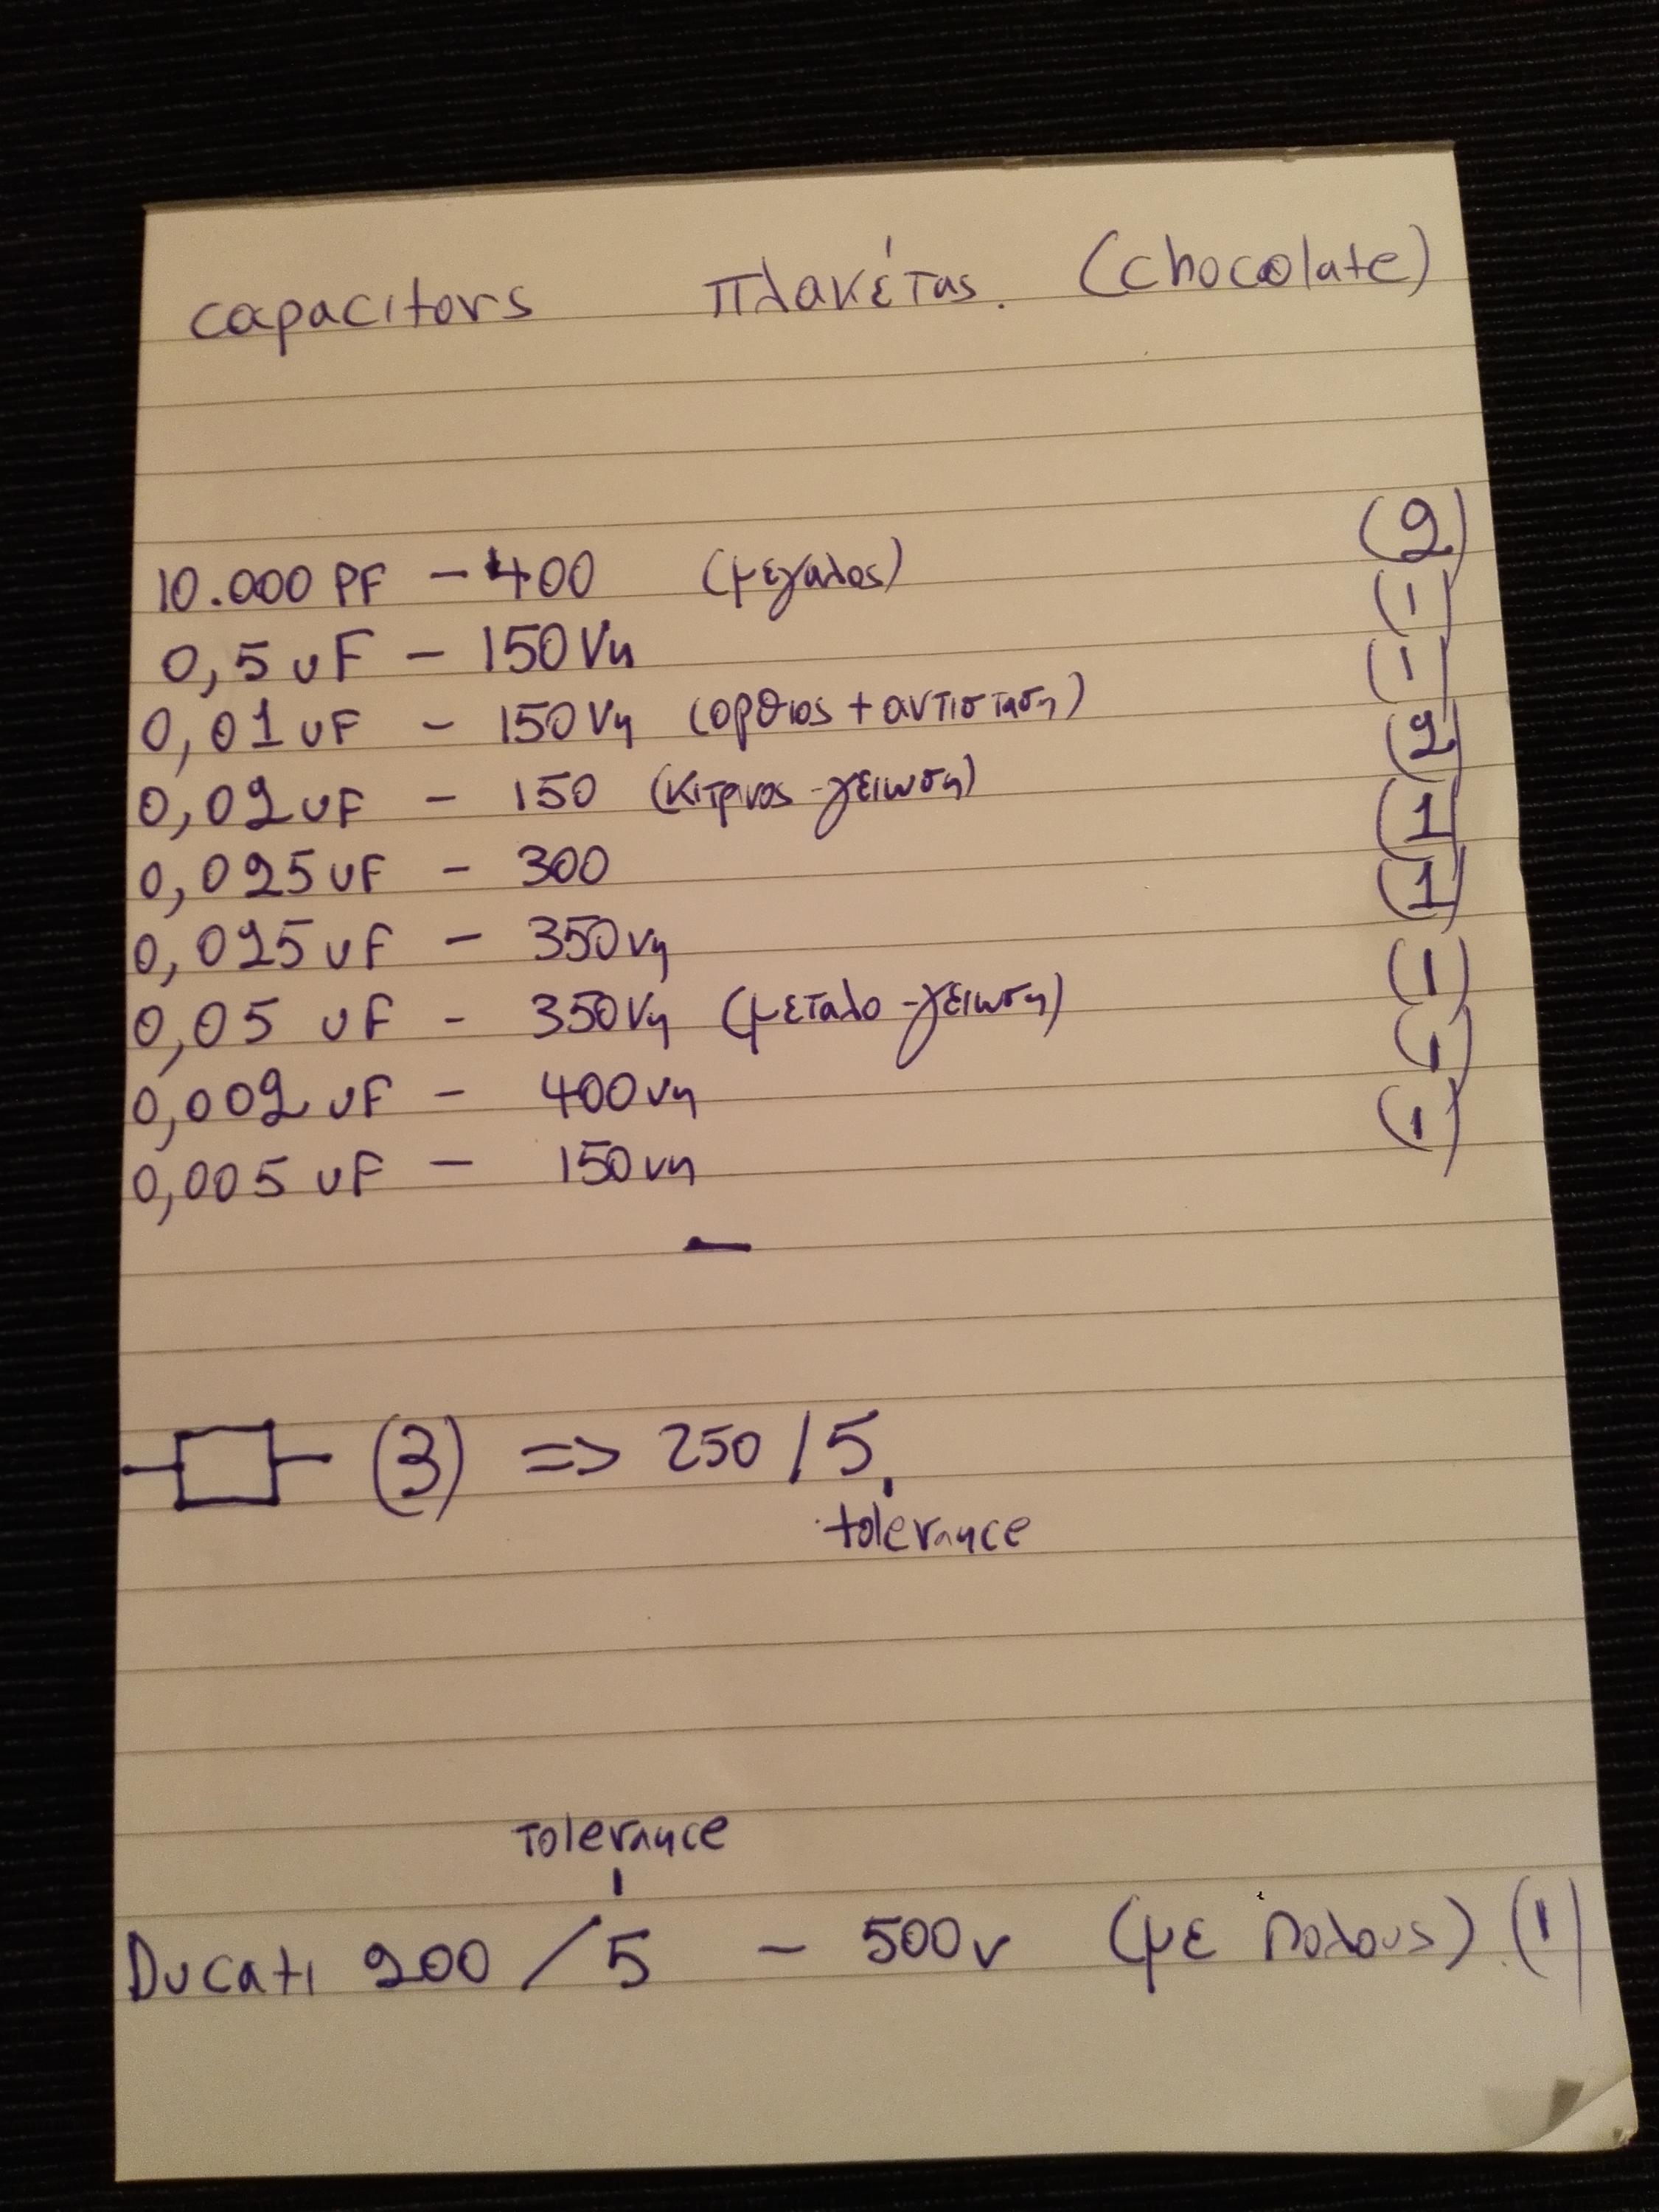 capacitors πλακέτας. (chocolate)
10.000 PF - 400 (μεγαλος) (2)
0,5 uF - 150 Vη (1)
0,01 uF - 150 Vη (ορθιος + αντισταση) (1)
0,02 uF - 150 (κιτρινος - γειωση) (2)
0,025 uF - 300 (1)
0,025 uF - 350 Vη (1)
0,05 uF - 350 Vη (μεταλο - γειωση) (1)
0,002 uF - 400 vη (1)
0,005 uF - 150 vη (1)
(3) => 250 / 5
tolerance
Tolerance
Ducati 200 / 5 - 500v (με πολους) (1)